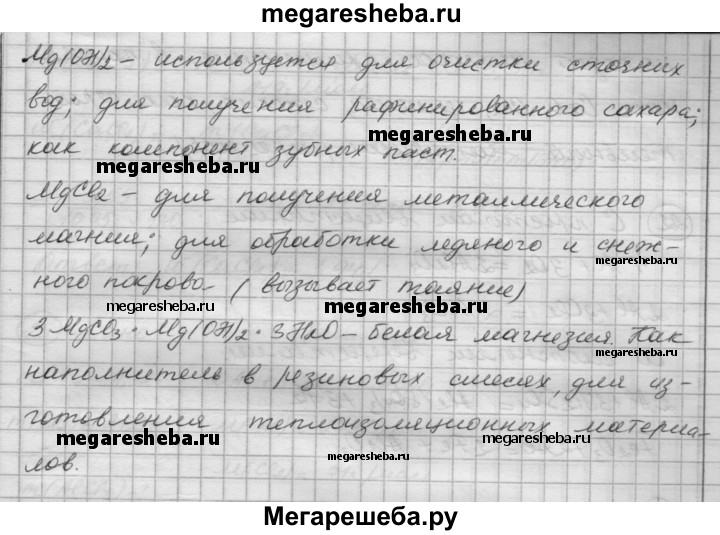 megaresheba.ru
Mg(OH)2 – используется для очистки сточних
вод; для получения рафинированного сахара;
megaresheba.ru
как компонент зубных паст.
megaresheba.ru
MgCl2 – для получения металлического
магния; для обработки ледяного и снеж-
megaresheba.ru
ного покрова (вызывает таяние)
megaresheba.ru
megaresheba.ru
megaresheba.ru
3MgCO3 · Mg(OH)2 · 3H2O – белая магнезия. Как
наполнитель в резиновых смесях, для из-
готовления теплоизоляционных материа-
megaresheba.ru
megaresheba.ru
лов.
megaresheba.ru
Мегарешеба.ру